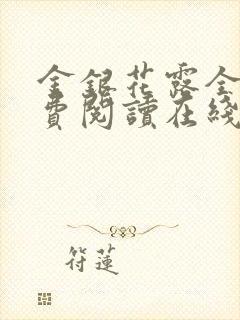 金銀花露全
費閱讀在綫
符蓮